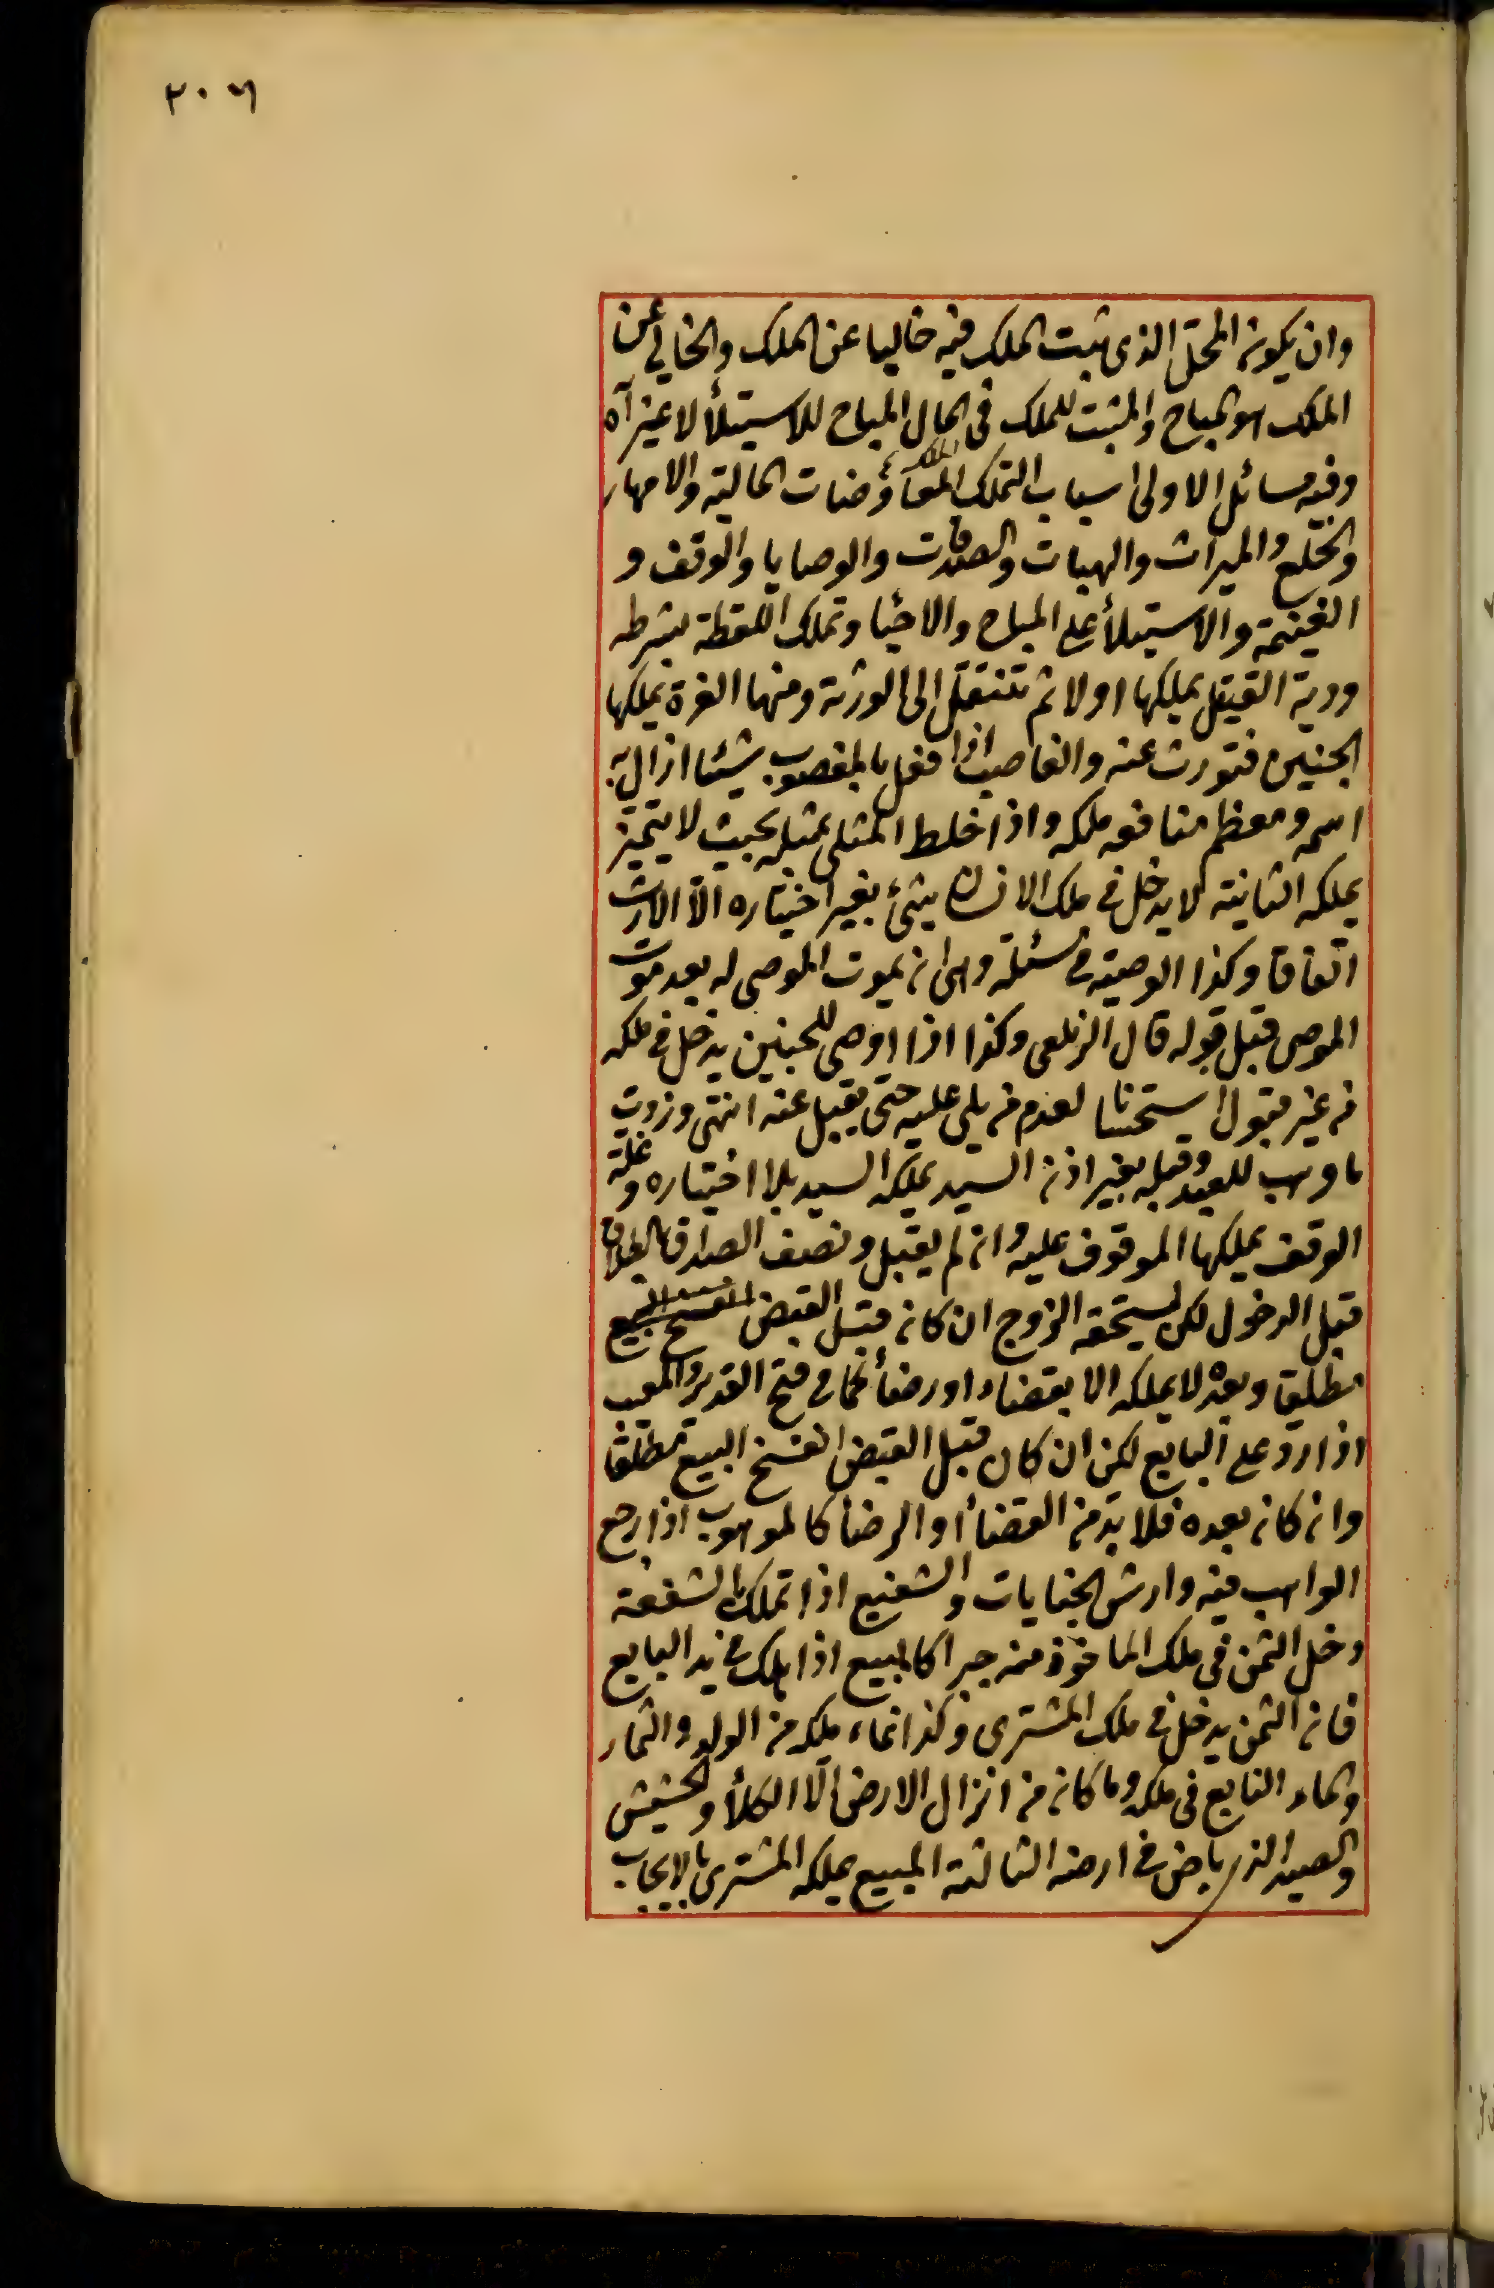 ٢٠٦
وان يكون المحل الذى ثبت الملك فيه خاليا عن الملك والخالى عن
الملك هو المباح والمثبت للملك فى المال المباح للاستيلأ لا غير آه
وفيه مسائل الاولى اسباب التملك المعاوضات المالية والامهار
والخلع والميراث والهبات والصدقات والوصايا والوقف و
الغنيمة والاستيلأ على المباح والاحيا وتملك اللقطة بشرطه
ودية القتيل يملكها اولا ثم تنتقل الى الورثة ومنها الغرة يملكها
الجنين فتورث عنه والغاصب اذا فعل بالمغصوب شيئا ازال به
اسمه ومعظم منافعه ملكه واذا خلط المثلى بمثله بحيث لا يتميز
يملكه الثانية لا يدخل فى ملك الانسان شئ بغير اختياره الا الارث
اتفاقا وكذا الوصية فى مسئلة وهى ان يموت الموصى له بعد موت
الموصى قبل قبوله قال الزيلعى وكذا اذا اوصى للجنين يدخل فى ملكه
من غير قبول استحسانا لعدم من يلى عليه حتى يقبل عنه انتهى وزدت
ما وهب للعبد وقبله بغير اذن السيد يملكه السيد بلا اختياره وغلة
الوقف يملكها الموقوف عليه وان لم يقبل ونصف الصداق بالطلاق
قبل الدخول لكن يستحقه الزوج ان كان قبل القبض انفسخ البيع
مطلقا وبعده لا يملكه الا بقضاء او رضأ كما فى فتح القدير والمعيب
اذا رد على البايع لكن ان كان قبل القبض انفسخ البيع مطلقا
وان كان بعده فلا بد من القضأ او الرضأ كالموهوب اذا رجع
الواهب فيه وارش الجنايات والشفيع اذا تملك بالشفعة
دخل الثمن فى ملك الماخوذ منه جبرا كالمبيع اذا هلك فى يد البايع
فان الثمن يدخل فى ملك المشترى وكذا نماء ملكه من الولد والثمار
والماء النابع فى ملكه وما كان من انزال الارض الا الكلأ والحشيش
والصيد الذى باض فى ارضه الثالثة المبيع يملكه المشترى بالايجاب